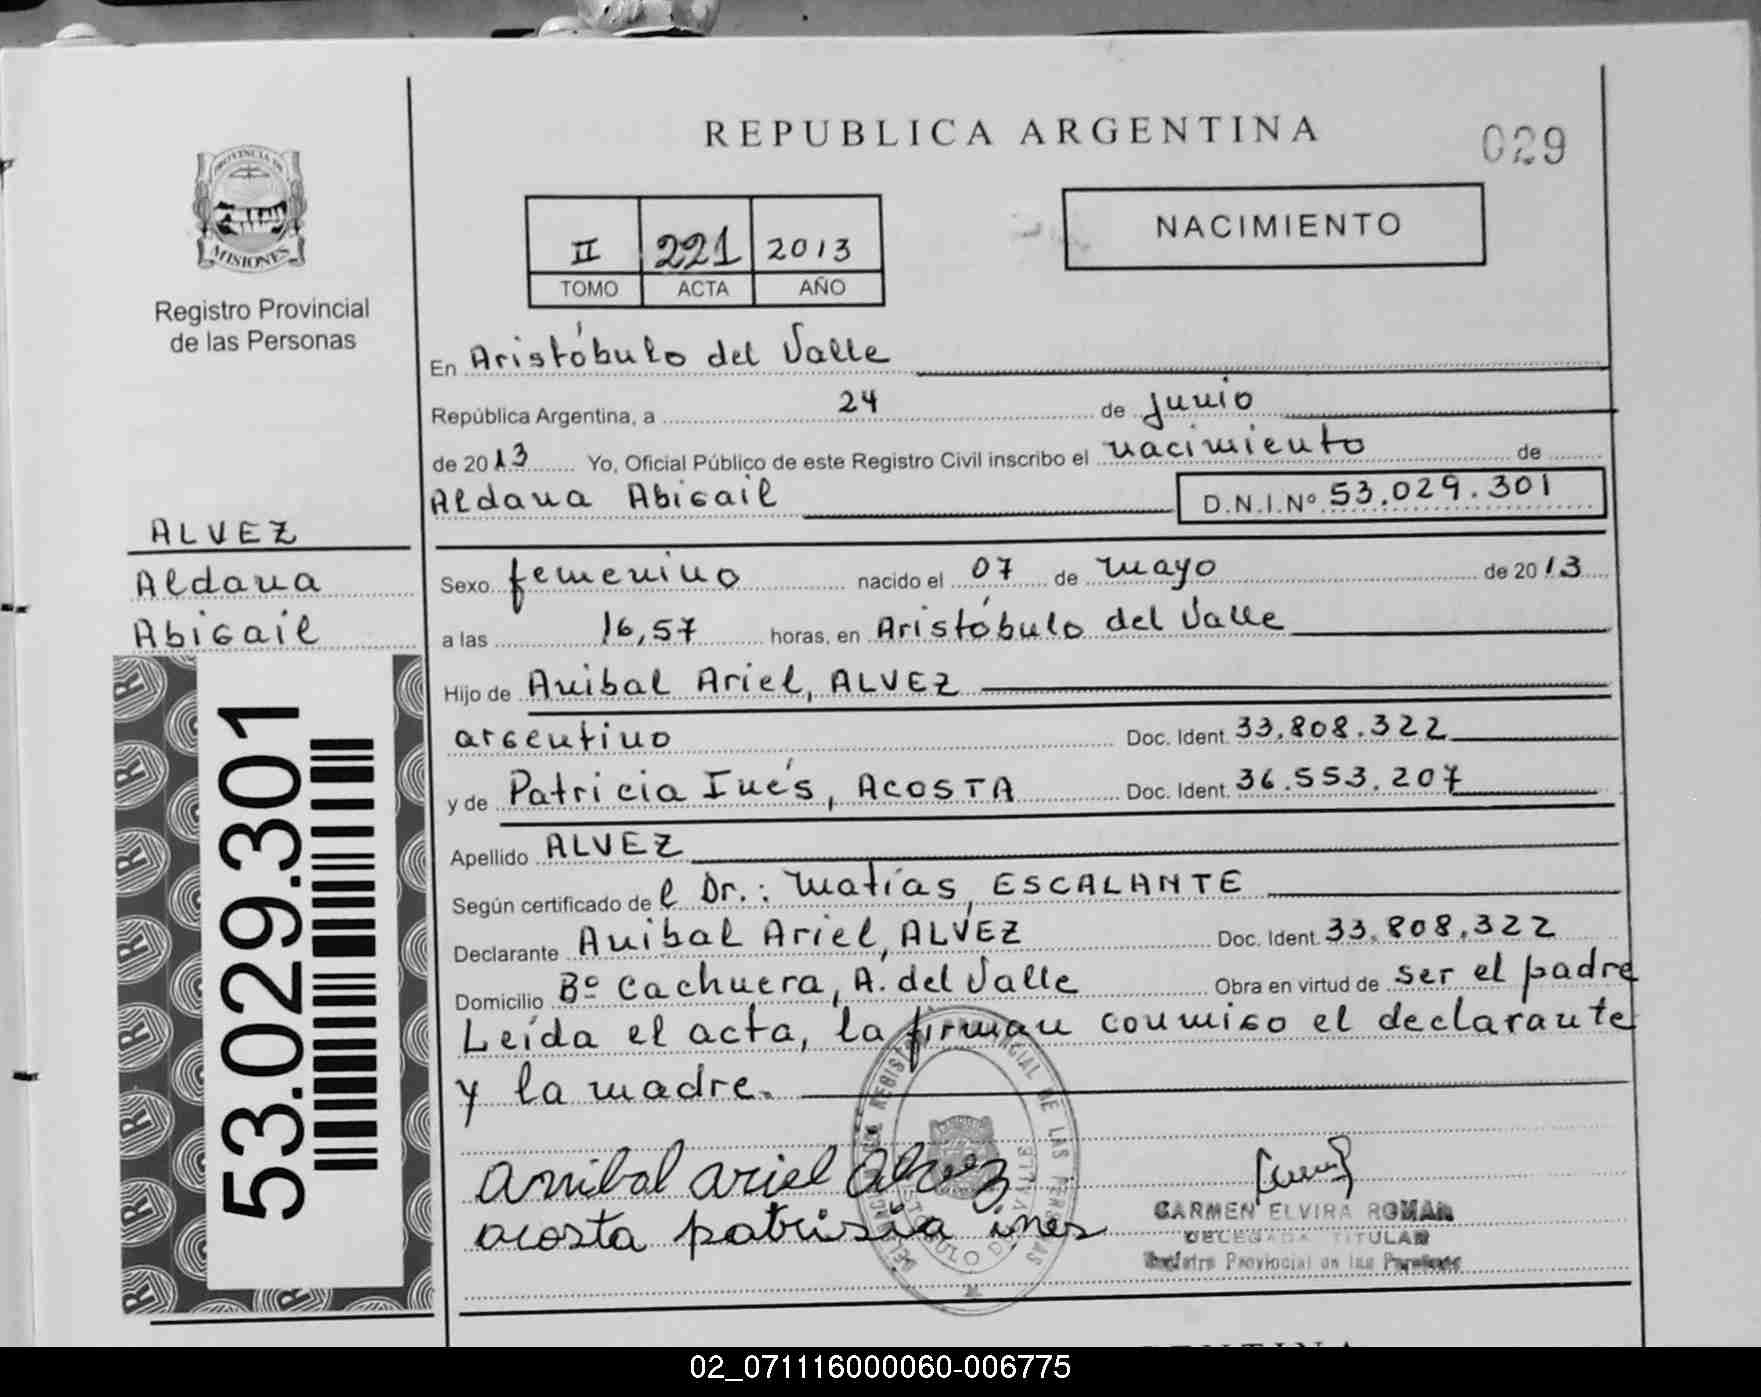 REPUBLICA ARGENTINA
029
PROVINCIA DE
MISIONES
Registro Provincial
de las Personas
II 221 2013
TOMO ACTA AÑO
NACIMIENTO
En Aristóbulo del Valle
República Argentina, a 24 de junio
de 2013 Yo, Oficial Público de este Registro Civil inscribo el nacimiento de
Aldana Abigail D.N.I.Nº 53.029.301
ALVEZ
Aldana
Abigail
53.029.301
Sexo femenino nacido el 07 de mayo de 2013
a las 16,57 horas, en Aristóbulo del Valle
Hijo de Anibal Ariel, ALVEZ
argentino Doc. Ident. 33.808.322
y de Patricia Inés, ACOSTA Doc. Ident. 36.553.207
Apellido ALVEZ
Según certificado de l Dr.: Matías, ESCALANTE
Declarante Anibal Ariel, ALVEZ Doc. Ident. 33.808.322
Domicilio Bº Cachuera, A. del Valle Obra en virtud de ser el padre
Leída el acta, la firman conmigo el declarante
y la madre.
anibal ariel alvez
acosta patrisia ines
CARMEN ELVIRA ROMAN
DELEGADA TITULAR
Registro Provincial de las Personas
02_071116000060-006775